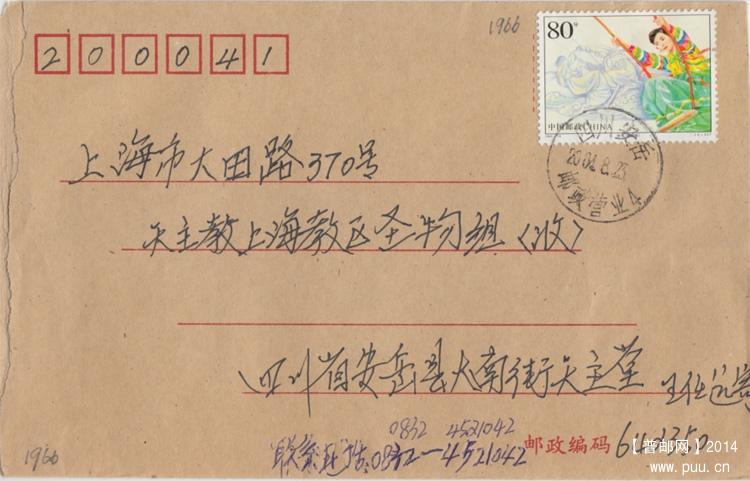 1966
200041
80分
中国邮政CHINA
四川安岳
2004.8.23
营业
上海市大田路370号
天主教上海教区圣物组（收）
四川省安岳县大南街天主堂
0832 4521042
联系电话：0832—4521042
邮政编码 642350
1966
【普邮网】2014
www.puu.cn